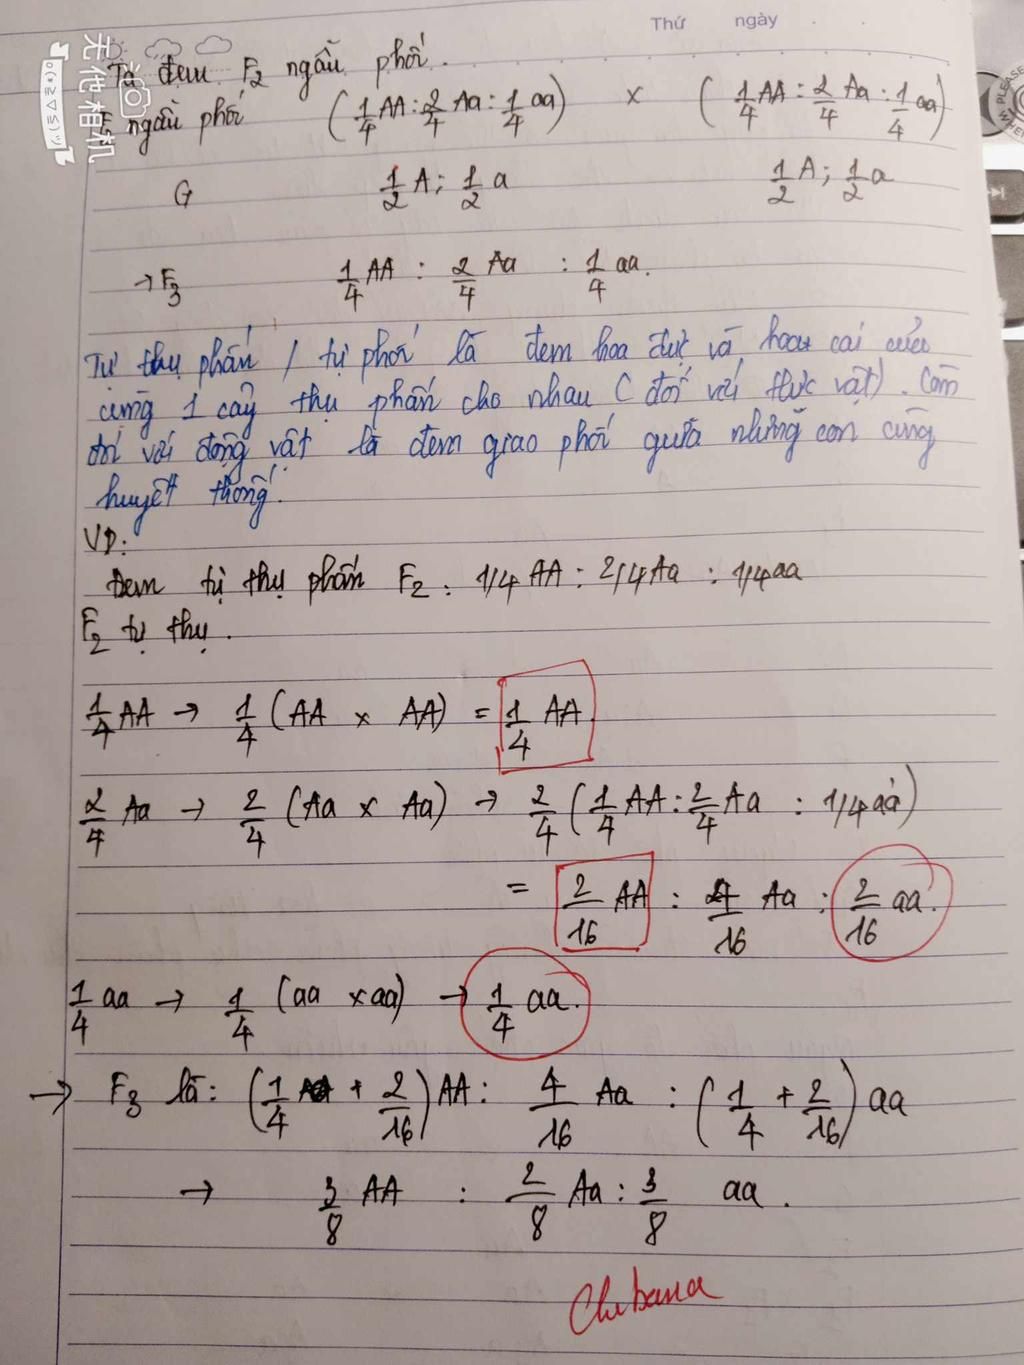 Thứ ngày
Ta đem F2 ngẫu phối.
F2 ngẫu phối (1/4 AA : 2/4 Aa : 1/4 aa) x (1/4 AA : 2/4 Aa : 1/4 aa)
G 1/2 A; 1/2 a 1/2 A; 1/2 a
→ F3 1/4 AA : 2/4 Aa : 1/4 aa.
Tự thụ phấn / tự phối là đem hoa đực và hoa cái của
cùng 1 cây thụ phấn cho nhau (đối với thực vật). Còn
đối với động vật là đem giao phối giữa những con cùng
huyết thống.
VD:
Đem tự thụ phấn F2 : 1/4 AA : 2/4 Aa : 1/4 aa
F2 tự thụ.
1/4 AA → 1/4 (AA x AA) = 1/4 AA.
2/4 Aa → 2/4 (Aa x Aa) → 2/4 (1/4 AA : 2/4 Aa : 1/4 aa)
= 2/16 AA : 4/16 Aa : 2/16 aa.
1/4 aa → 1/4 (aa x aa) → 1/4 aa.
→ F3 là: (1/4 + 2/16) AA : 4/16 Aa : (1/4 + 2/16) aa
→ 3/8 AA : 2/8 Aa : 3/8 aa.
Chibana
无他相机
PLEASE